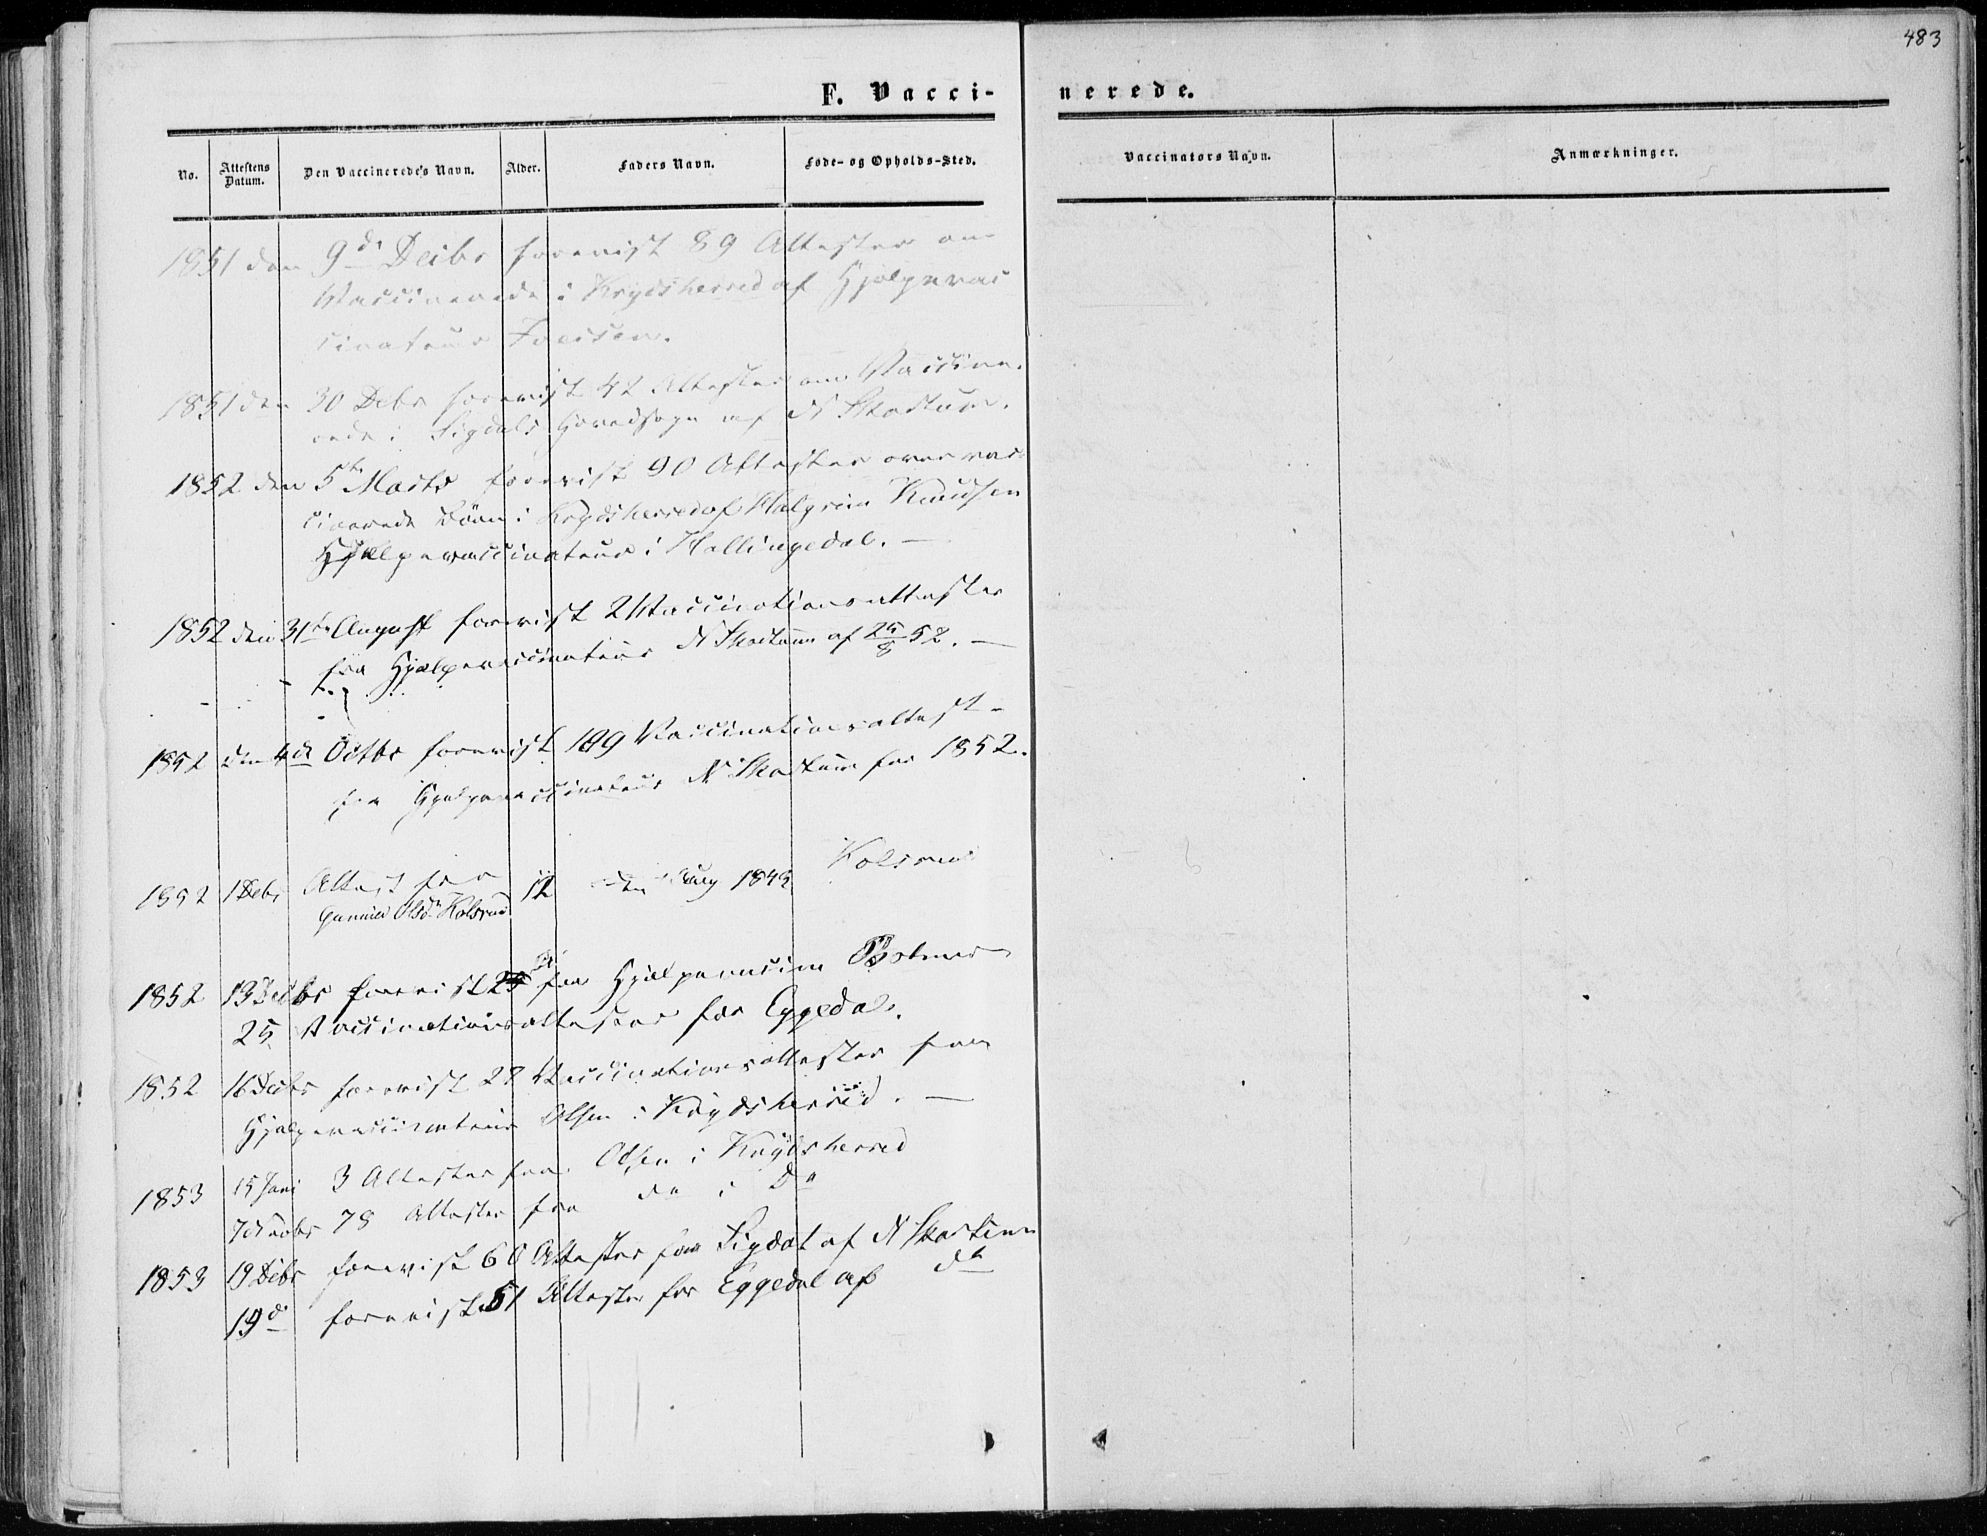 483
F. Vacci-
nerede.
No.
Attestens Datum.
Den Vaccineredes Navn.
Alder.
Faders Navn.
Føde- og Opholds-Sted.
Vaccinators Navn.
Anmærkninger.
1851 den 9de Decbr forevist 89 Attester om
Vaccinerede i Krydsherred af Hjælpevac
cinateur
1851 den 30 Debr forevist 42 Attester om Vaccine-
rede i Sigdals Hovedsogn af N Skartum.
1852 den 5te Marts forevist 90 Attester over vac
cinerede Børn i Krydsherred af Halgrim Knudsen
Hjælpevaccinateur i Hallingdal. —
1852 den 31te August forevist 2 Vaccinationsattester
fra Hjælpevaccinateur N Skartum af 25/8 52. —
1852 den 4de Octbr forevist 189 Vaccinationsattest-
fra Hjelpevaccinateur N. Skartum for 1852.
1852 1 Debr Attest for 12 den Aug 1849 Kolsrud
Gunnild Olsdr Kolsrud
1852 13 Decbr forevist fra Hjælpevaccin
25 Vaccinationsattester for Eggedal.
1852 16 Decbr forevist 28 Vaccinationsattester fra
Hjælpevaccinateur Olsen i Krydsherred. —
1853 15 Juni 3 Attester fra Olsen i Krydsherred
7 Novbr 78 Attester fra do i Do
1853 19 Debr forevist 60 Attester for Sigdal af N Skartum
19 do forevist 51 Attester for Eggedal af do